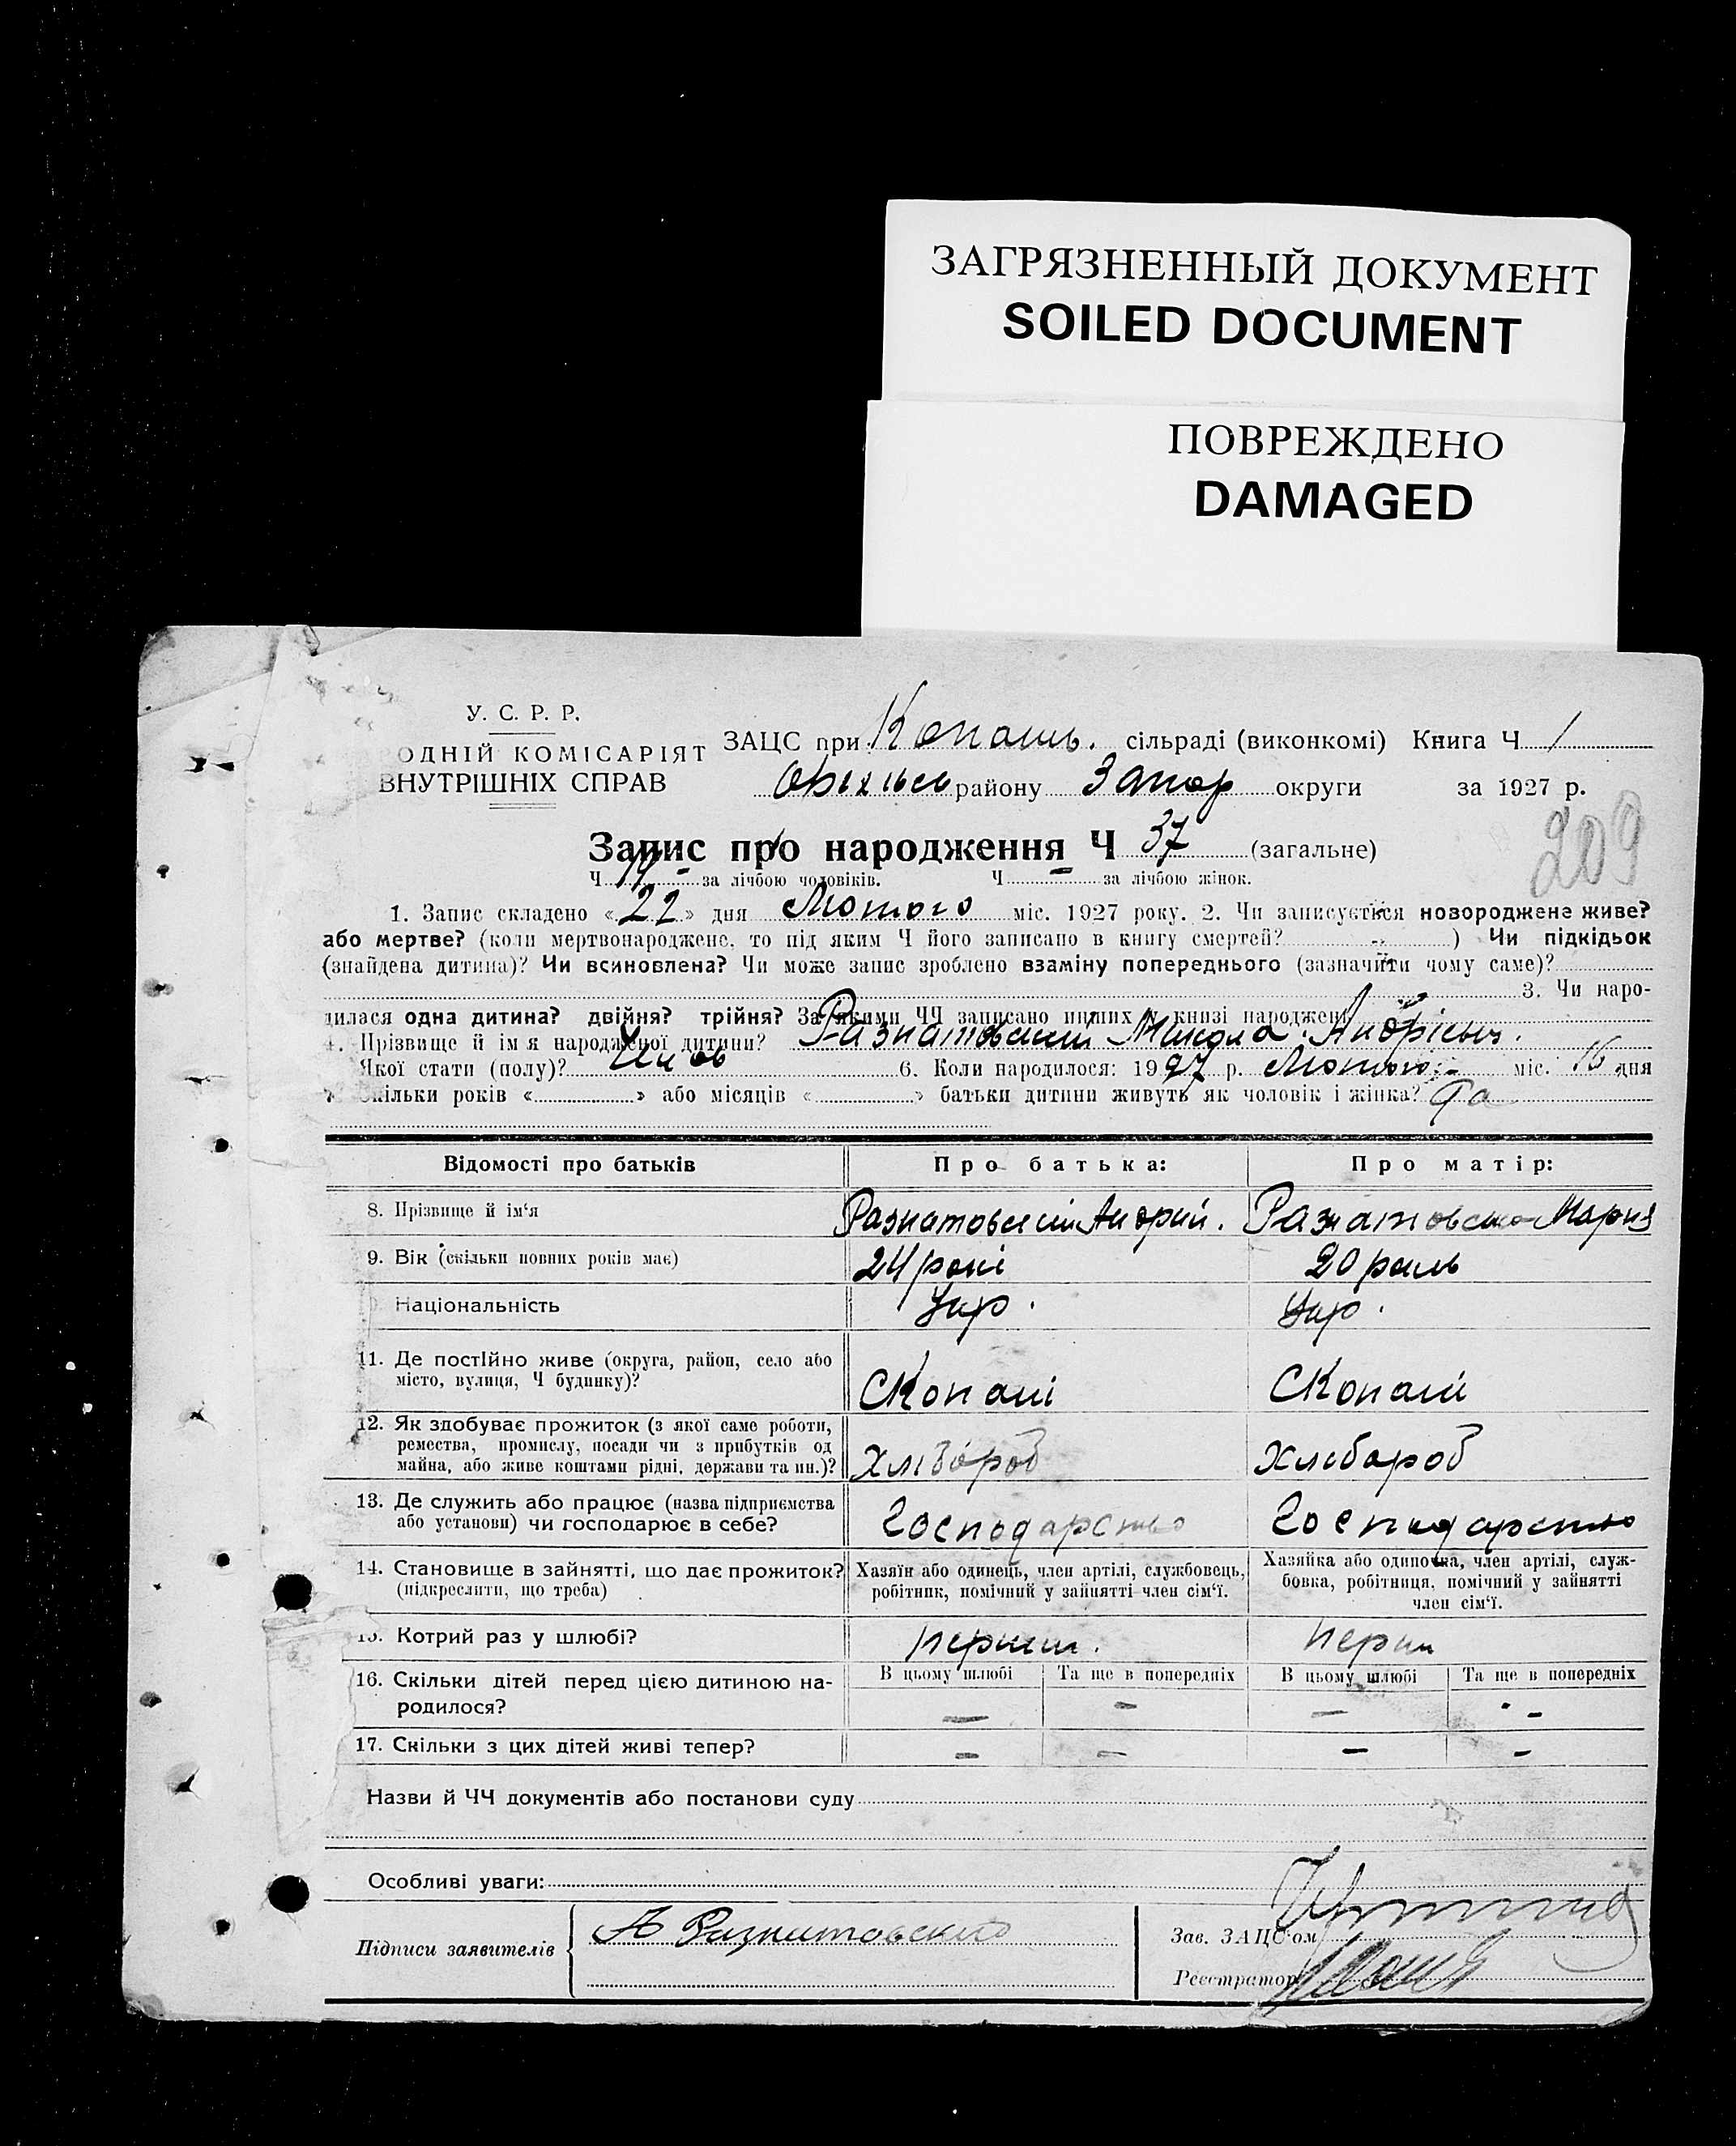 ЗАГРЯЗНЕННЫЙ ДОКУМЕНТ
SOILED DOCUMENT
ПОВРЕЖДЕНО
DAMAGED
У. С. Р. Р.
ОДНІЙ КОМІСАРІЯТ
ВНУТРІШНІХ СПРАВ
ЗАЦС при Копань. сільраді (виконкомі) Книга Ч 1
району Запор округи за 1927 р.
209
Запис про народження Ч 37 (загальне)
Ч 19 за лічбою чоловіків. Ч — за лічбою жінок.
1. Запис складено «22» дня Лютого міс. 1927 року. 2. Чи записується новороджене живе?
або мертве? (коли мертвонароджене, то під яким Ч його записано в книгу смертей? ) Чи підкідьок
(знайдена дитина)? Чи всиновлена? Чи може запис зроблено взаміну попереднього (зазначити чому саме)?
3. Чи наро-
дилася одна дитина? двійня? трійня? За якими ЧЧ записано инших у книзі народжень
4. Прізвище й ім'я народженої дитини? Разнатовський Микола Андріевич.
Якої стати (полу)? Чолов 6. Коли народилося: 1927 р. Лютого міс. 16 дня
Скільки років « » або місяців « » батьки дитини живуть як чоловік і жінка? Да
Відомості про батьків Про батька: Про матір:
8. Прізвище й ім'я Разнатовский Андрий. Разнатовська Мария
9. Вік (скільки повних років має) 24 роки 20 роців
Національність Укр. Укр.
11. Де постійно живе (округа, район, село або
місто, вулиця, Ч будинку)? С Копані С Копані
12. Як здобуває прожиток (з якої саме роботи,
ремества, промислу, посади чи з прибутків од
майна, або живе коштами рідні, держави та ин.)? Хлібороб Хлибороб
13. Де служить або працює (назва підприємства
або установи) чи господарює в себе? Господарство Господарство
14. Становище в зайнятті, що дає прожиток?
(підкреслити, що треба)
Хазяїн або одинець, член артілі, службовець,
робітник, помічний у зайнятті член сім'ї.
Хазяйка або одиночка, член артілі, служ-
бовка, робітниця, помічний у зайнятті
член сім'ї.
15. Котрий раз у шлюбі? перший. перш
16. Скільки дітей перед цією дитиною на-
родилося?
В цьому шлюбі Та ще в попередніх В цьому шлюбі Та ще в попередніх
— — — —
17. Скільки з цих дітей живі тепер? — — — —
Назви й ЧЧ документів або постанови суду
Особливі уваги:
Підписи заявителів А Разнатовский
Зав. ЗАЦС'ом
Реєстратор